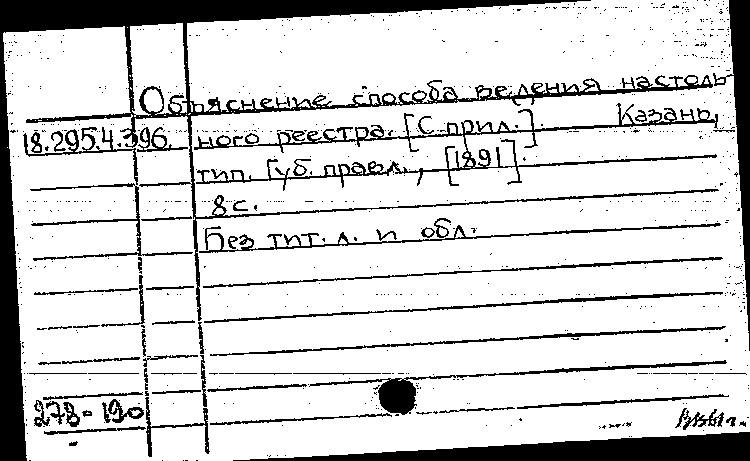 Объяснение способа ведения настоль-
18.295.4.396. ного реестра. [С прил.] Казань,
тип. Губ. правл., [1891].
8 с.
Без тит. л. и обл.
278-190